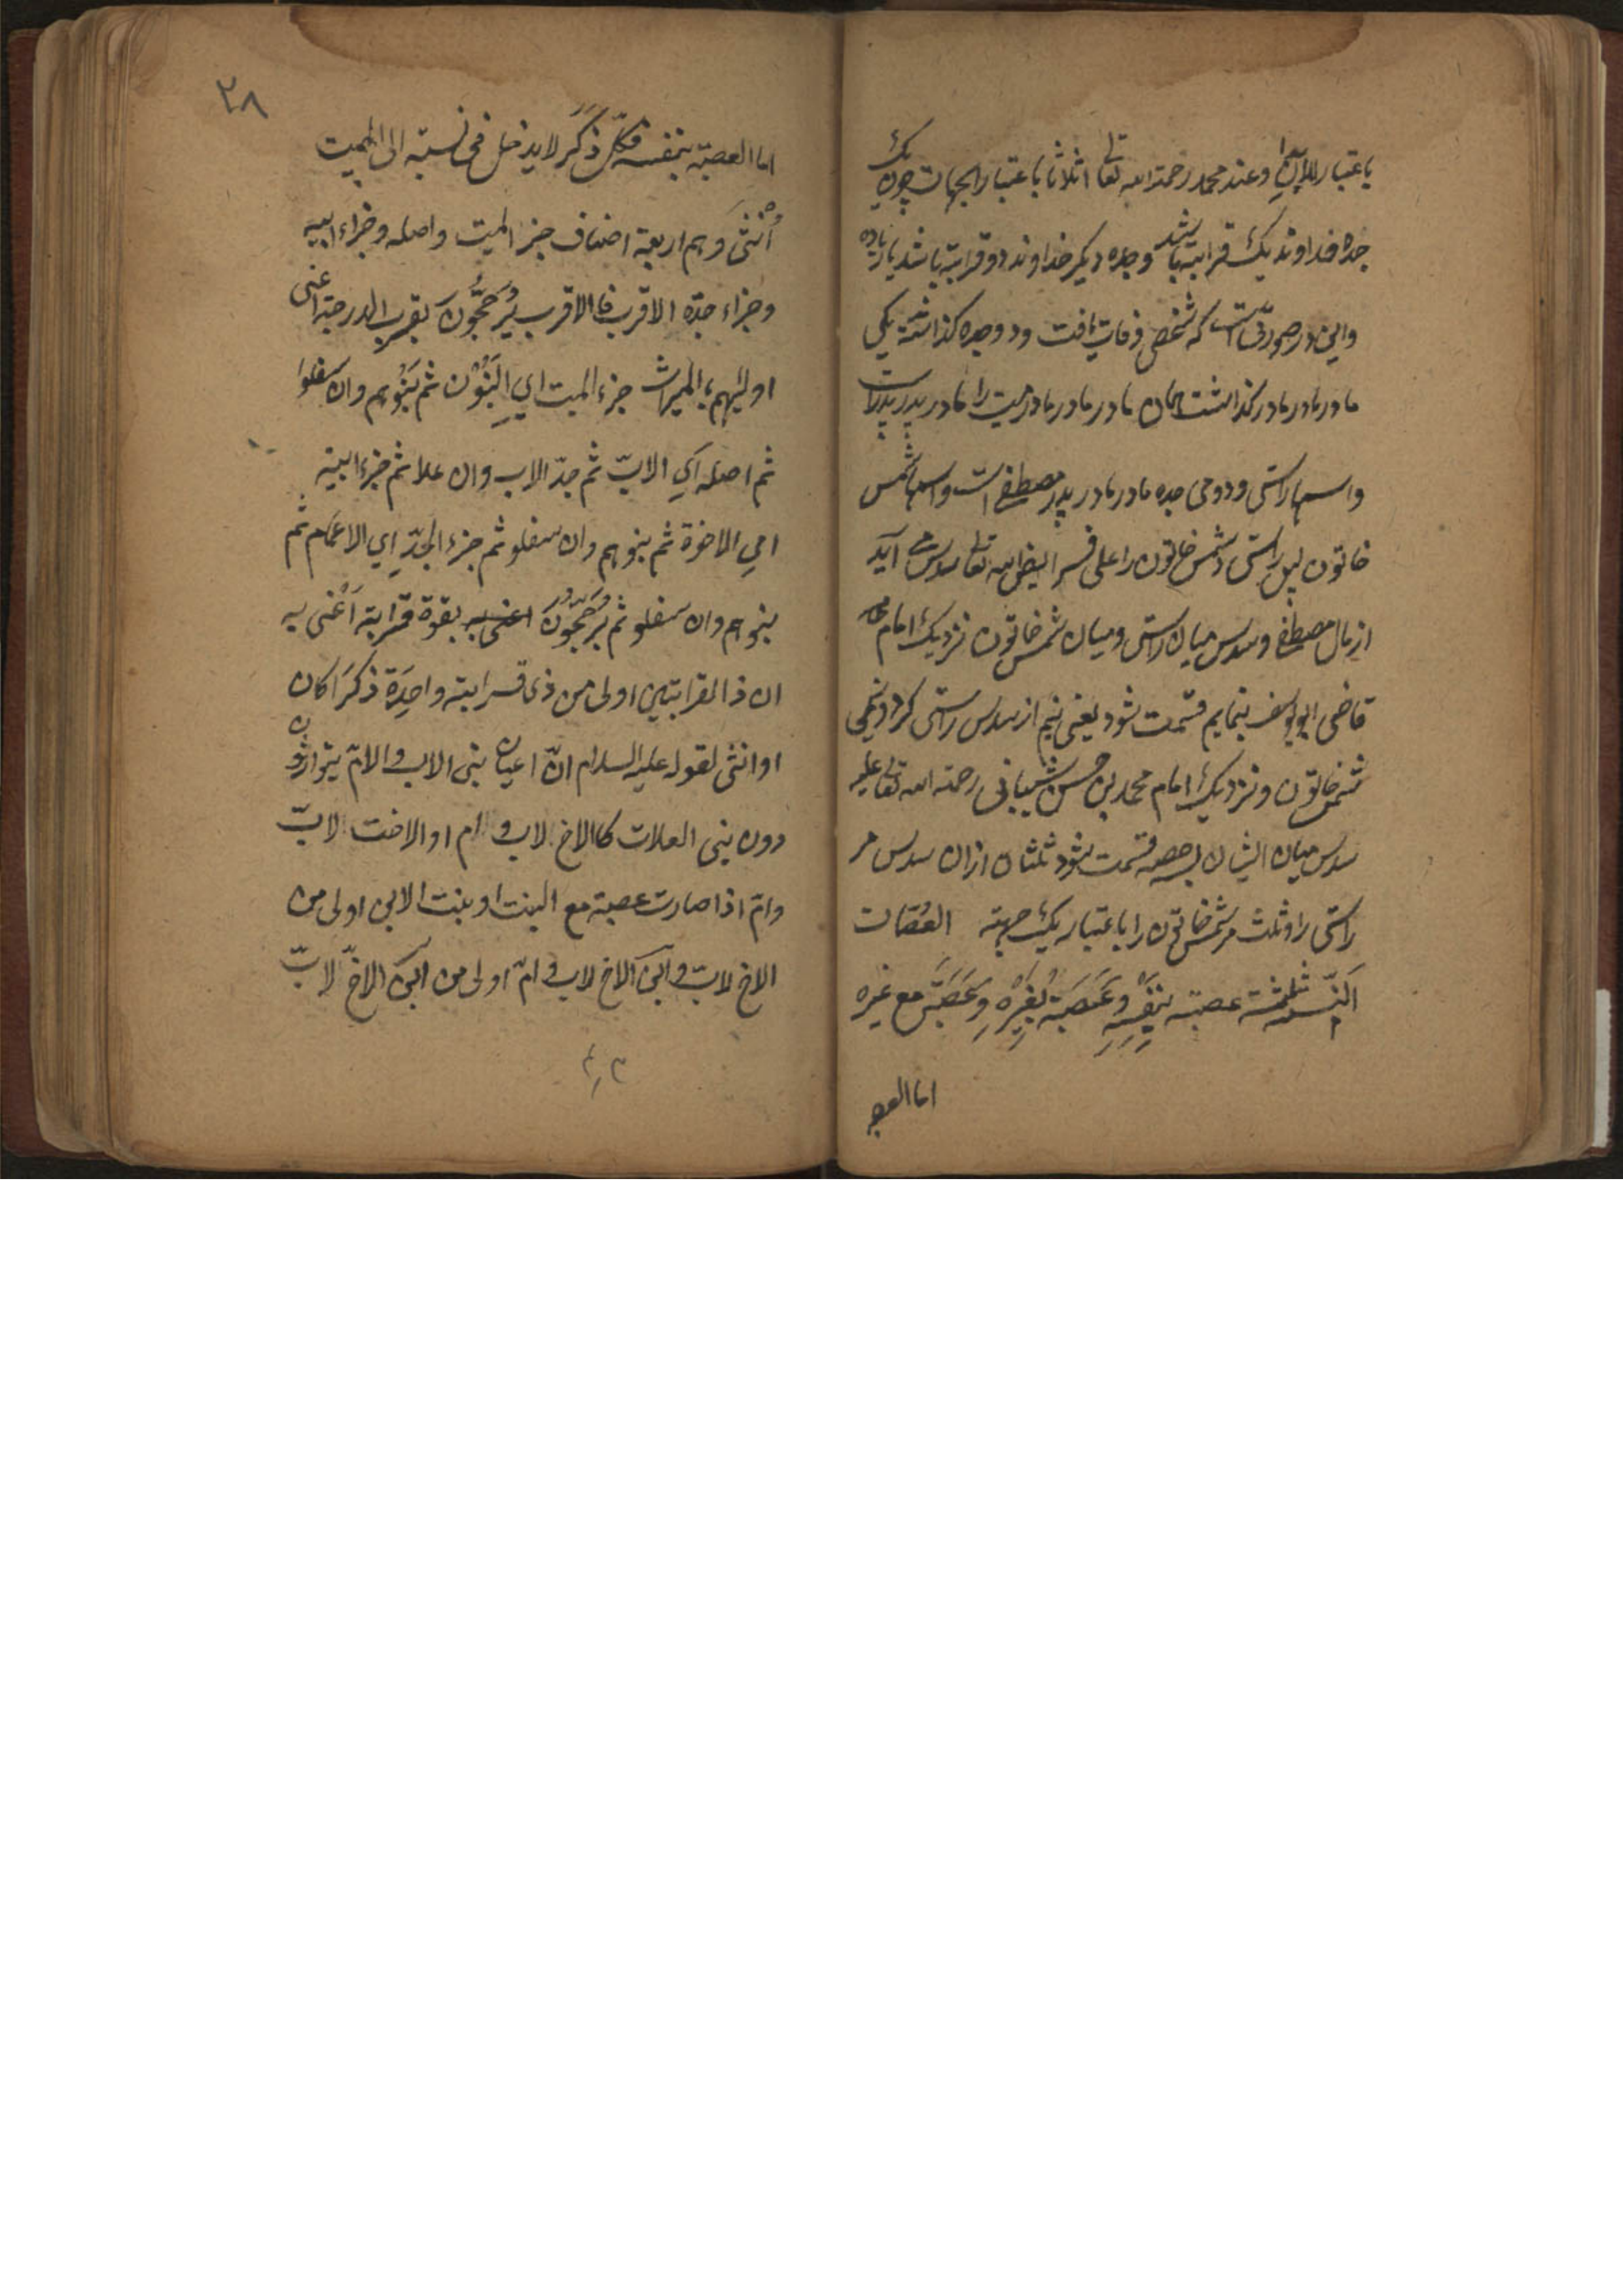 باعتبار الابدان وعند محمد رحمة الله تعالى اثلاثا باعتبار الجهات چون يك
جده خداوند يك قرابة باشد وجده ديكر خداوند دو قرابة باشد يا زياده
واين در صورتى است كه شخصى وفات يافت ودو جده كذاشت يكى
مادر مادر مادر كذاشت همان مادر مادر مادر ميت را مادر پدر پدر است
واسمها راستى ودومى جده مادر مادر پدر مصطفى است واسمها شمس
خاتون پس راستى وشمس خاتون را على فرايض الله تعالى سدس مى آيد
از مال مصطفى وسدس ميان راستى وميان شمس خاتون نزديك امام
قاضى ابو يوسف بنمايم قسمت شود يعنى نيم از سدس راستى كرد ونيمى
شمس خاتون ونزديك امام محمد بن حسن شيبانى رحمة الله تعالى عليه
سدس ميان ايشان بسه حصه قسمت شود ثلثان ازان سدس مر
راستى را وثلث مر شمس خاتون را باعتبار يك جهته العصبات
النسبية ثلثة عصبة بنفسه وعصبة بغيره وعصبة مع غيره
اما العصبه
٢٨
اما العصبة بنفسه فكل ذكر لا يدخل فى نسبته الى الميت
انثى وهم اربعة اصناف جزء الميت واصله وجزاء ابيه
وجزاء جده الاقرب فالاقرب يرجحون بقرب الدرجة اعنى
اوليهم بالميراث جزء الميت اي البنون ثم بنوهم وان سفلوا
ثم اصله اي الاب ثم جد الاب وان علا ثم جزء ابيه
اي الاخوة ثم بنوهم وان سفلو ثم جزء الجد اي الاعمام ثم
بنوهم وان سفلو ثم يرجحون بقوة قرابة اعنى به
ان ذا القرابتين اولى من ذى قرابة واحدة ذكرا كان
او انثى لقوله عليه السلام ان اعيان بنى الاب والام يتوارثون
دون بنى العلات كالاخ لاب و ام او الاخت لاب
وام اذا صارت عصبة مع البنت او بنت الابن اولى من
الاخ لاب وابن الاخ لاب و ام اولى من ابن الاخ لاب